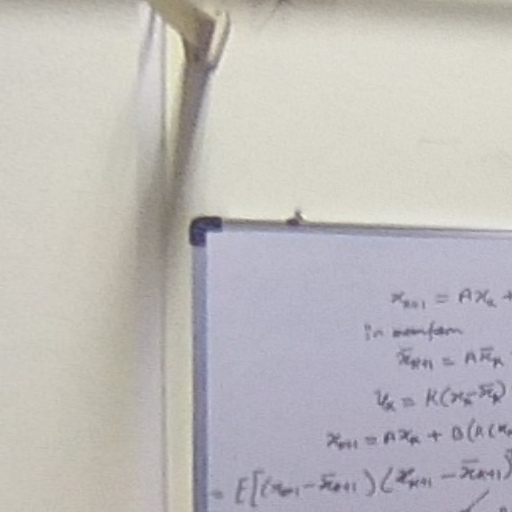 x_{k+1} = Ax_k +
in
x̄_{k+1} = Ax̄_k
u_k = K(x_k - x̄_k)
x_{k+1} = Ax_k + B(K(x_k
= E[(x_{k+1} - x̄_{k+1})(x_{k+1} - x̄_{k+1})